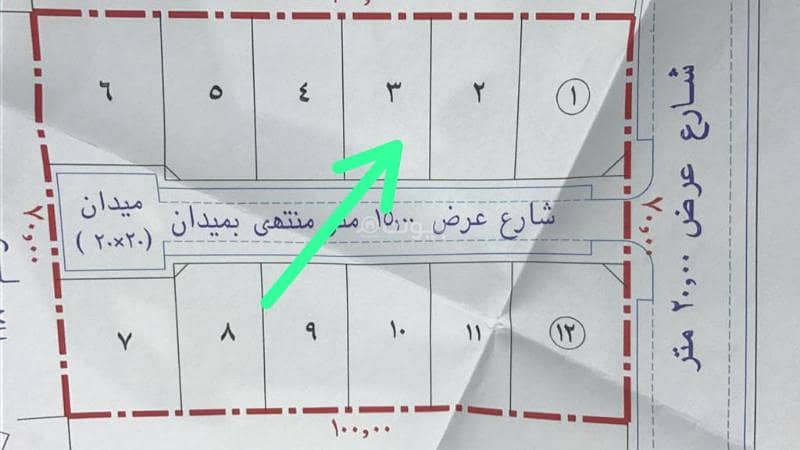 ٦
٥
٤
٣
٢
١
شارع عرض ٢٠,٠٠ متر
ميدان
(٢٠×٢٠)
شارع عرض ١٥,٠٠ متر منتهى بميدان
٧٠,٠٠
٧٠,٠٠
٧
٨
٩
١٠
١١
١٢
١٠٠,٠٠